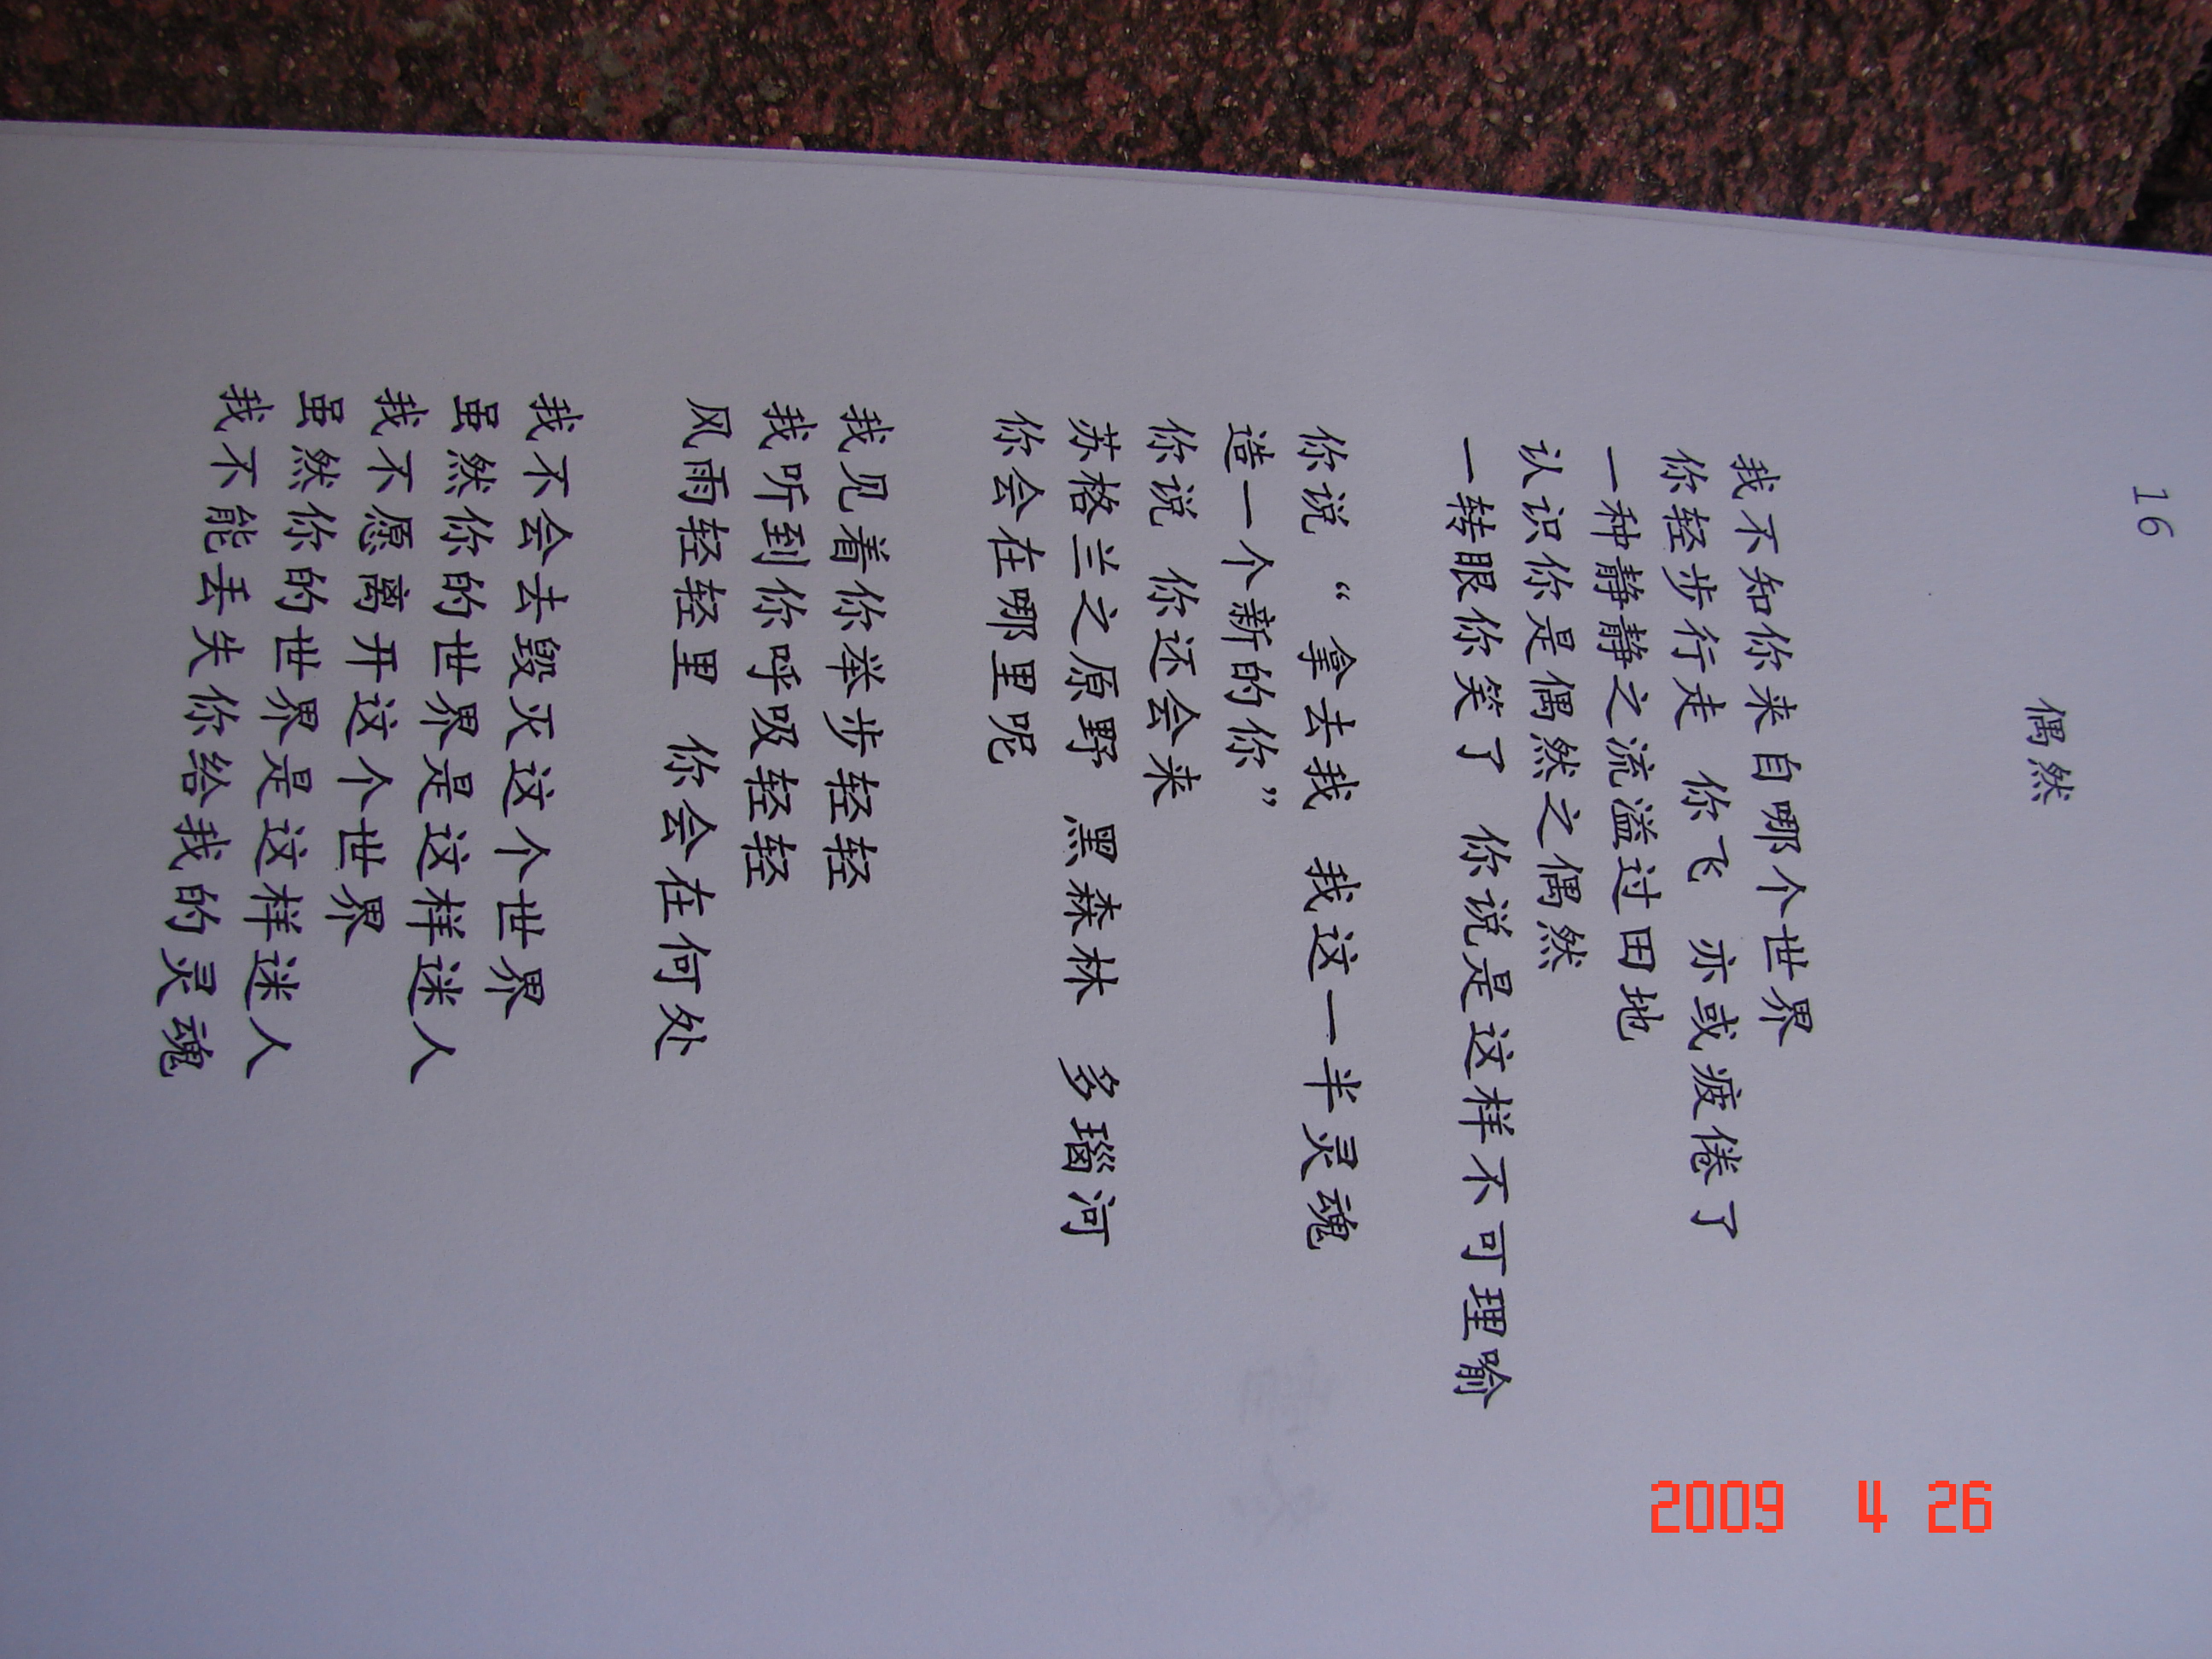 16
偶然
我不知你来自哪个世界
你轻步行走 你飞 亦或疲倦了
一种静静之流溢过田地
认识你是偶然之偶然
一转眼你笑了 你说是这样不可理喻
你说 “拿去我 我这一半灵魂
造一个新的你”
你说 你还会来
苏格兰之原野 黑森林 多瑙河
你会在哪里呢
我见着你举步轻轻
我听到你呼吸轻轻
风雨轻轻里 你会在何处
我不会去毁灭这个世界
虽然你的世界是这样迷人
我不愿离开这个世界
虽然你的世界是这样迷人
我不能丢失你给我的灵魂
2009 4 26